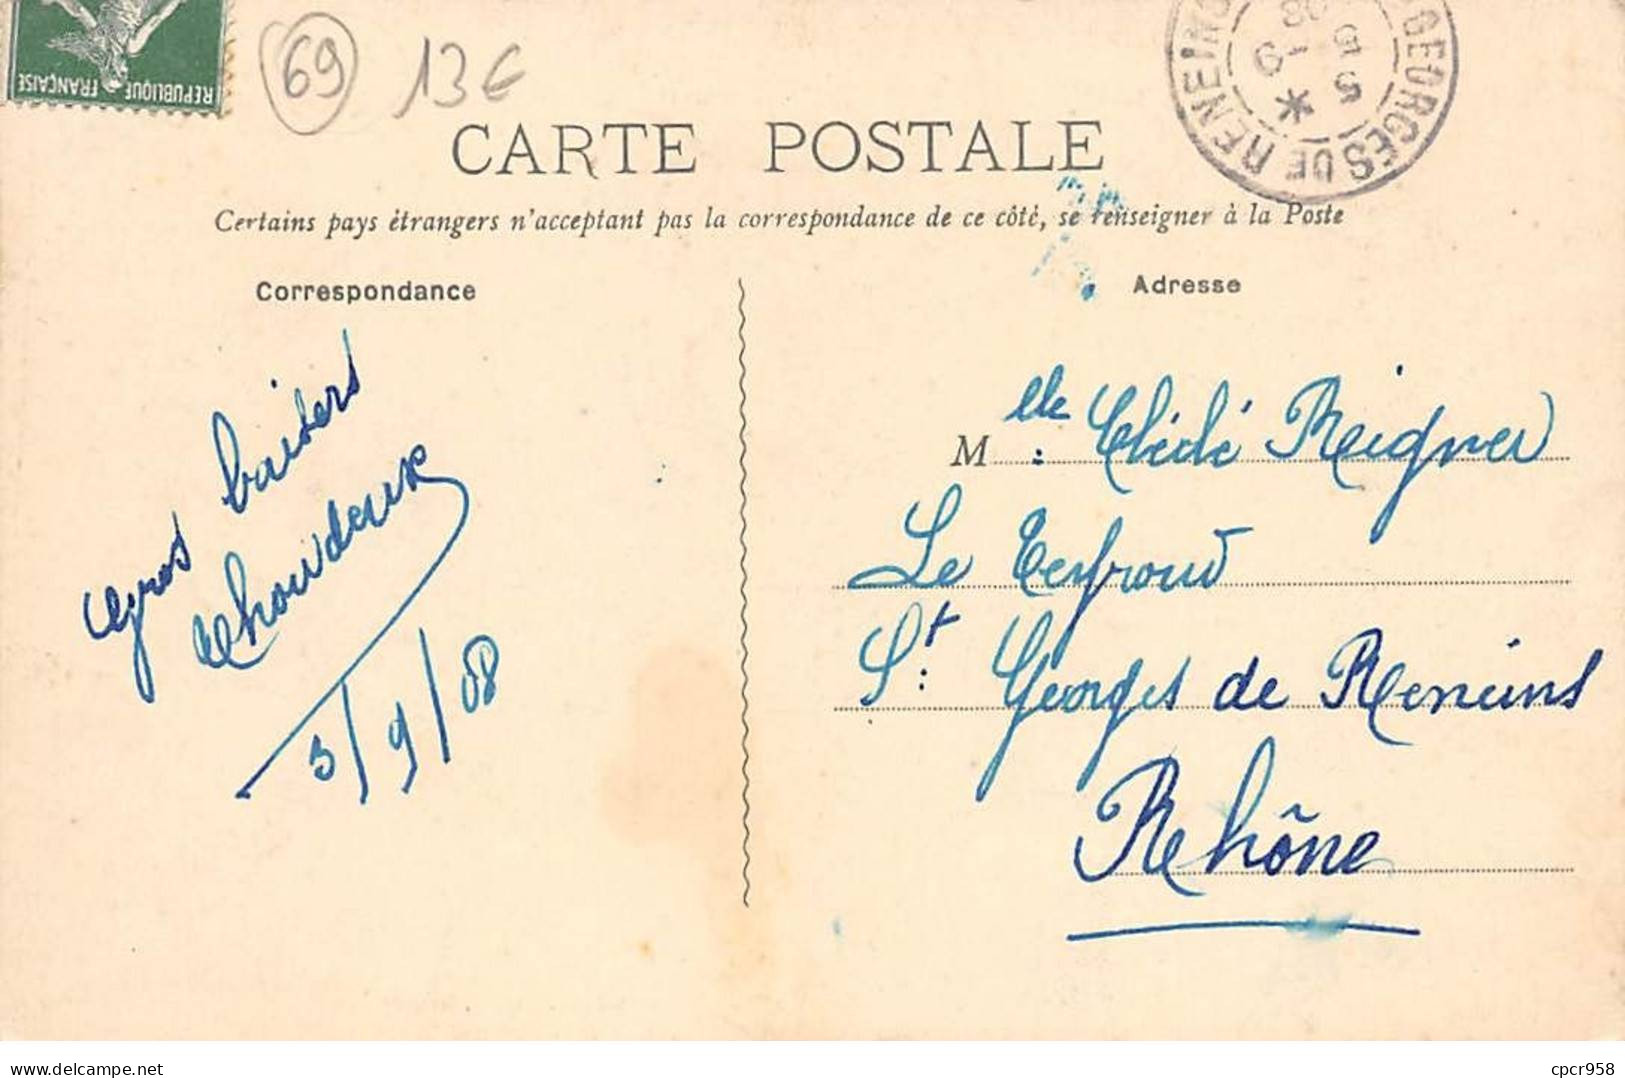 REPUBLIQUE FRANÇAISE
69
13 €
GEORGES DE RENEINS
5
CARTE POSTALE
Certains pays étrangers n'acceptant pas la correspondance de ce côté, se renseigner à la Poste
Correspondance
Adresse
gros baisers
3/9/08
Melle: Cléclé Reigner
Le
St: Georges de Reneins
Rhône
www.delcampe.net
cpcr958